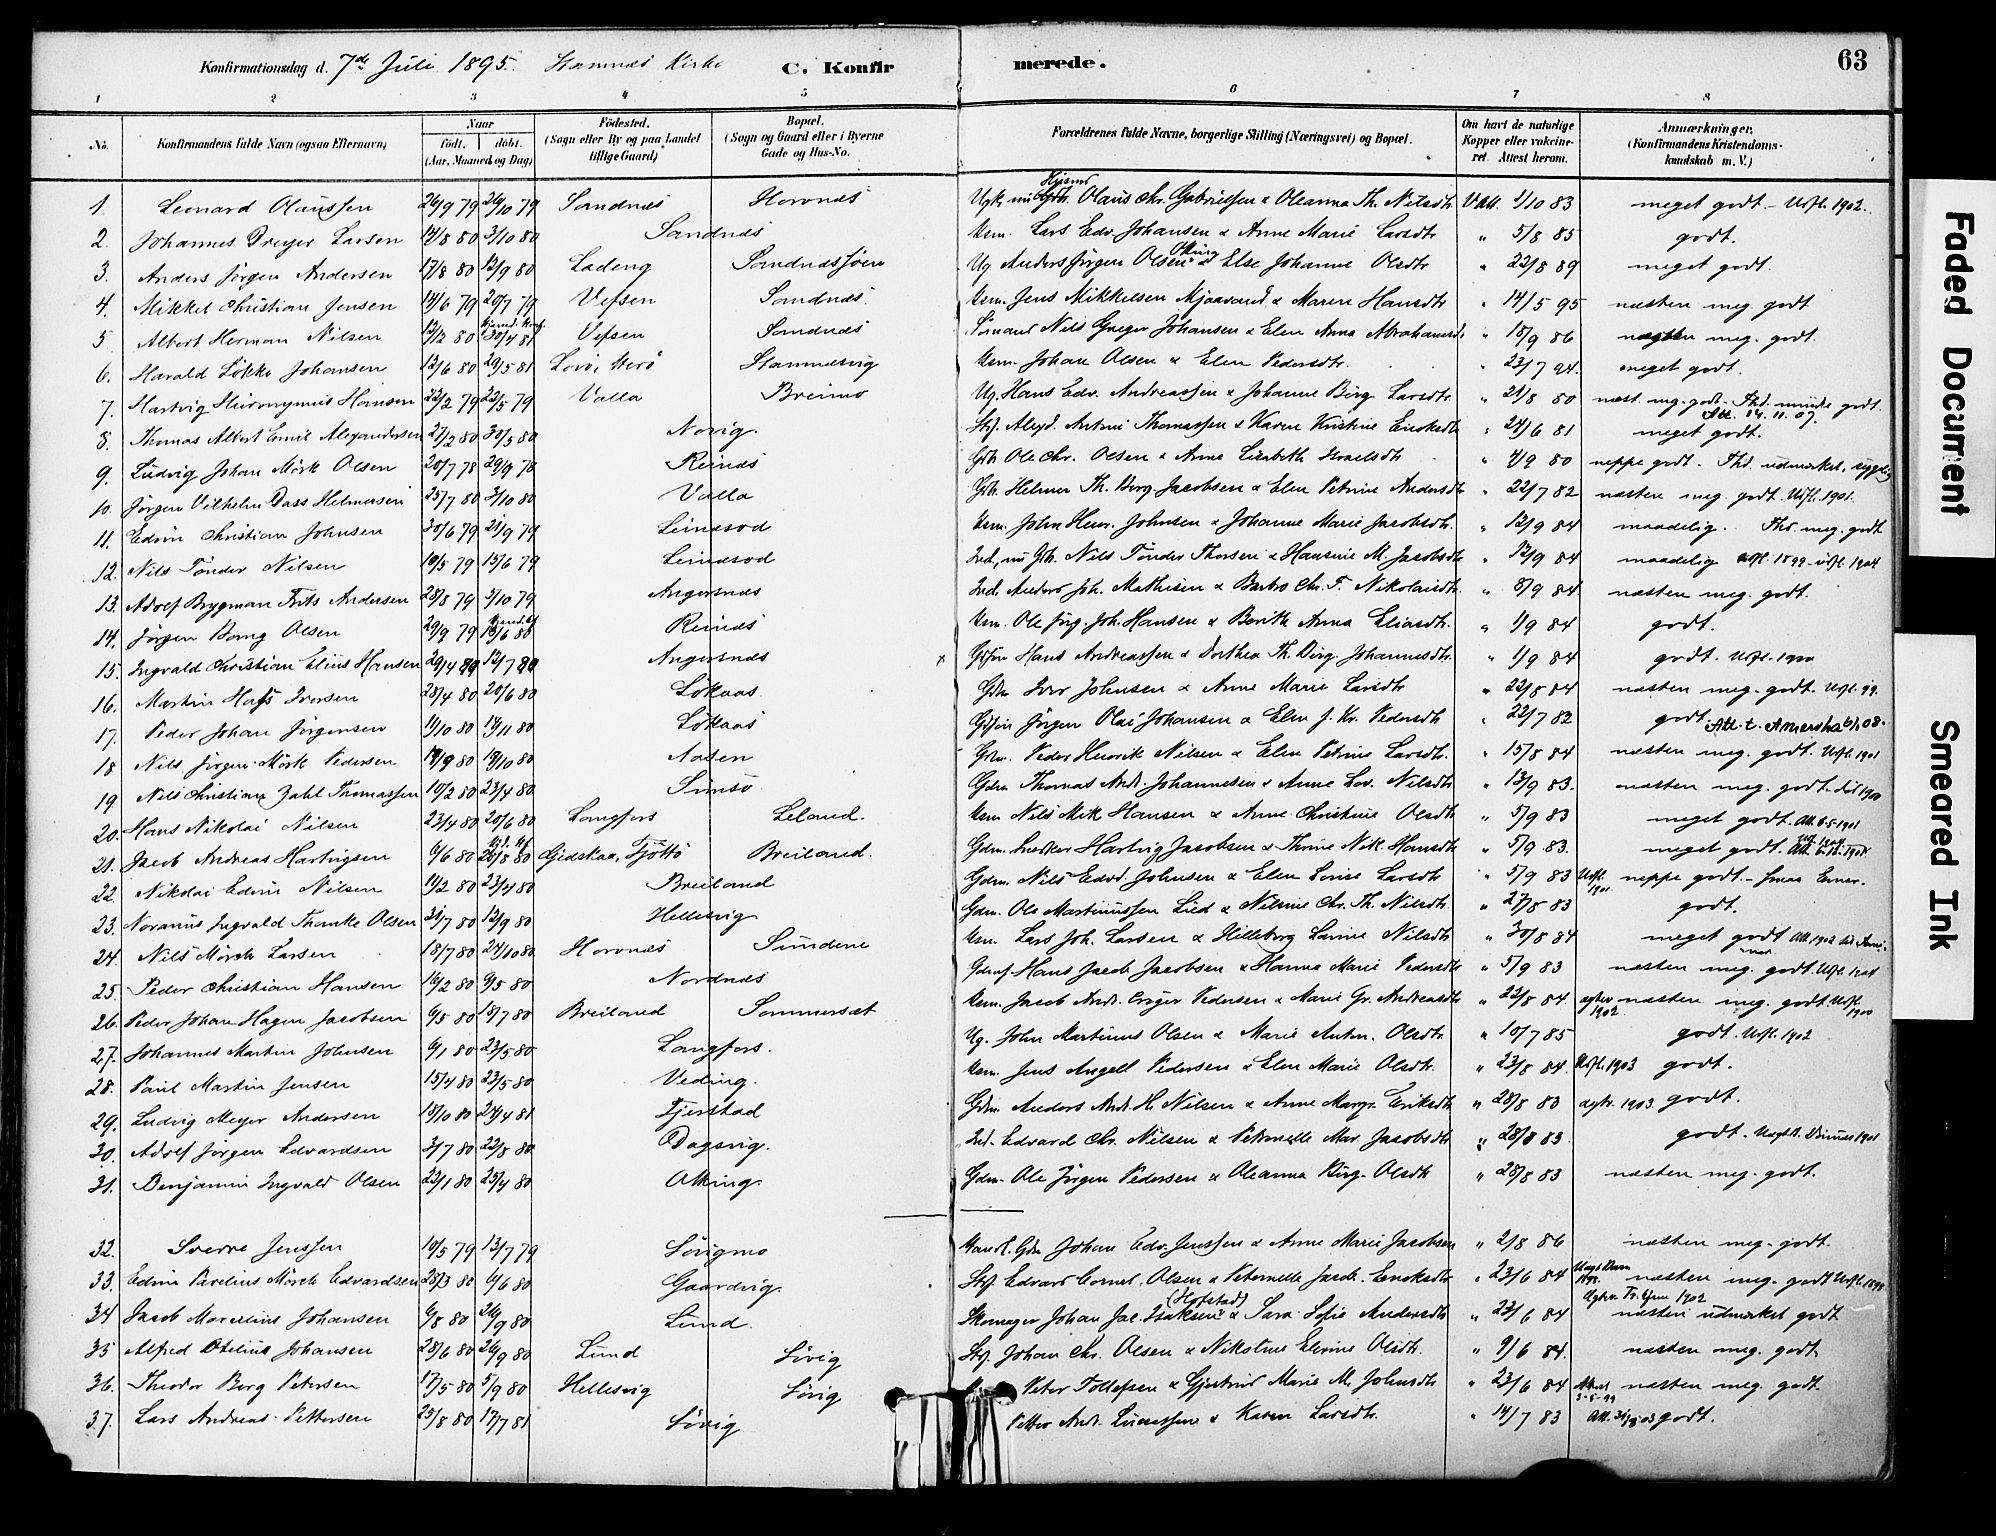 Konfirmationsdag d. 7de Juli 1895. Stamnæs Kirke C. Konfirmerede. 63
1 2 3 4 5 6 7 8
No. Konfirmandens fulde Navn (ogsaa Efternavn) Naar født. døbt. (Aar, Maaned og Dag) Fødested. (Sogn eller By og paa Landet tillige Gaard) Bopæl. (Sogn og Gaard eller i Byerne Gade og Hus-No. Forældrenes fulde Navne, borgerlige Stilling (Næringsvei) og Bopæl. Om havt de naturlige Kopper eller vakcineret. Attest herom. Anmærkninger. (Konfirmandens Kristendomskundskab m. V.)
1. Leonard Olaussen 26/9 79 26/10 79 Sandnæs Horvnæs Olaus Chr. Gabrielsen & Oleanna Th. Nilsdtr. V. Att. 1/10 83 meget godt - Udfl. 1902.
2. Johannes Dreyer Larsen 14/8 80 3/10 80 Sandnæs Lars Edv. Johansen & Anne Marie Larsdtr " 5/8 85 godt.
3. Anders Jørgen Andersen 17/8 80 12/9 80 Ladeng Sandnæssjøen Ug Anders Jørgen Olsen & Else Johanne Olsdtr " 22/8 89 meget godt.
4. Mikkel Christian Jensen 14/6 79 20/7 79 Vefsen Sandnæs Jens Mikkelsen & Maren Hansdtr " 14/5 95 næsten meg. godt
5 Albert Herman Nilsen 12/2 80 30/4 81 Vefsen Sandnæs Nils Greger Johansen & Elen Anna Abrahamsd. " 18/9 86 næsten meg. godt.
6. Harald Løkke Johansen 12/6 80 29/5 81 Herø Stamnesvig Johan Olsen & Elen Pedersdtr. " 23/7 94. meget godt.
7. Hartvig Hieronymus Hansen 22/2 79 22/5 79 Valla Breimo Ug. Hans Edv. Andreassen & Johanne Berg Larsdtr. " 21/8 80 næst. mg. godt. Thd. mindre godt.
Att. 14.11.07.
8. Thomas Albert Emil Alexandersen 27/2 80 30/5 80 Norvig. Stf. Alexd. Antoni Thomassen & Karen Kristine Enoksdtr " 24/6 81 meget godt.
9. Ludvig Johan Mørk Olsen 20/7 78 29/9 78 Reinæs Gdr. Ole Chr. Olsen & Anne Lisabeth Israelsdtr " 4/9 80 neppe godt. Thd. udmærket.
10. Jørgen Vilhelm Dass Helmersen 25/7 80 3/10 80 Valla Gdr. Helmer Th. Berg Jacobsen & Elen Petrine Andersdtr " 22/7 82 næsten meg. godt. Udfl. 1901.
11. Edvin Christian Johnsen 30/6 79 21/9 79 Leindsod John Henr. Johnsen & Johanne Marie Jacobsdtr. " 12/9 84 maadelig. Thd. meg. godt
12. Nils Tønder Nilsen 10/5 79 15/6 79 Leindsod Ind., nu Gdr. Nils Tønder Thorsen & Hansine M. Jacobsdtr " 12/9 84 maadelig 1899 - udfl. 1904
13. Adolf Brygman Frits Andersen 28/8 79 3/10 79 Angersnæs Ind. Anders Joh. Mathisen & Barbro Chr. F. Nikolaisdtr " 8/9 84 næsten meg. godt.
14. Jørgen Bang Olsen 29/9 79 Reinæs Ole Jørg. Joh. Hansen & Berith Anna Eliasdtr. " 1/9 84 godt.
15. Ingvald Christian Elius Hansen 29/4 80 12/7 80 Angersnæs x Hans Andreassen & Dorthea Th. Berg. Johannesdtr. " 1/9 84 godt. Udfl. 1900
16. Martin Hass Iversen 28/4 80 20/6 80 Løkaas. Gdm Iver Johnsen & Anne Marie Larsdtr " 22/8 84 næsten meg. godt. Udfl. 99.
17. Peder Johan Jørgensen 1/10 80 14/11 80 Løkaas Jørgen Olai Johansen & Elen J. Kr. Pedersdtr " 22/7 82 godt Att. t. Amerika 6/1 08.
18 Nils Jørgen Mørk Pedersen 19/9 80 19/10 80 Aasen Gdm. Peder Henrik Nilsen & Elen Petrine Larsdtr. " 15/8 84 næsten meg. godt. Udfl. 1901
19. Nils Christian Zahl Thomassen 10/2 80 23/4 80 Simsø Gdm Thomas Andr. Johannesen & Anne Lov. Nilsdtr " 13/9 83. næsten meg. godt. 1900
20. Hans Nikolai Nilsen 23/4 80 20/6 80 Langfors Leland. Nils Mik Hansen & Anne Christine Olsdtr " 5/9 83 meget godt. Att. 6-5-1901
21. Jacob Andreas Hartvigsen 6/6 80 20/8 80 Gidskaa, Tjøttø Breiland. Gdm. Hartvig Jacobsen & Thrine Nik. Hansdtr " 5/9 83. meget godt.
22. Nikolai Edvin Nilsen 11/2 80 23/4 80 Breiland Gdm. Nils Edvd. Johnsen & Elen Lovise Larsdtr " 5/9 83 Udfl. 1901 neppe godt. - smaa Evner.
23. Noranus Ingvald Thanke Olsen 31/7 80 12/9 80 Hellesvig Gdm. Ole Martinussen Lied & Nilsine Chr. Th. Nilsdtr. " 27/8 83 godt.
24. Nils Mørch Larsen 18/7 80 24/10 80 Horvnæs Sundene Lars Joh. Larsen & Hilleborg Larine Nilsdtr " 30/8 84 meget godt Att. 1902
25. Peder Christian Hansen 16/2 80 9/5 80 Nordnæs Hans Jacob Jacobsen & Hanna Marie Pedersdtr " 5/9 83 næsten meg. godt. Udfl. 1904
26. Peder Johan Hagen Jacobsen 6/5 80 18/7 80 Breiland Sommersæt Jacob Andr. Crøger Pedersen & Marie Gr. Andreasdtr " 22/8 84. 1902 næsten meg. godt. Udfl. 1900
27. Johannes Martin Johnsen 6/1 80 23/5 80 Langfors. Ug. John Martinus Olsen & Marie Anton. Olsdtr. " 10/7 85 godt. Udfl. 1902
28. Paul Martin Jensen 15/4 80 23/5 80 Veding. Jens Angell Pedersen & Elen Marie Olsdtr. " 23/8 84. Udfl. 1903 godt.
29. Ludvig Meyer Andersen 18/10 80 24/4 81 Tjerstad Gdm. Anders Andr. H. Nilsen & Anne Margr. Eriksdtr " 28/8 83 1903. godt.
30. Adolf Jørgen Edvardsen 3/7 80 22/8 80 Dagsvig. Ind. Edvard Chr. Nilsen & Petronelle Mar. Jacobsdtr " 28/8 83. godt. 1901
31. Benjamin Ingvald Olsen 22/1 80 25/4 80 Økning. Gdm. Ole Jørgen Pedersen & Oleanna Birg. Olsdtr " 28/8 83 næsten meg. godt.
32. Sverre Jenssen 10/5 79 13/7 79 Sørigmo Johan Edv. Jenssen & Anne Marie Jacobsen " 2/8 86 næsten meg. godt.
33. Edvin Parelius Mørch Edvardsen 28/3 80 6/6 80 Gaardvig. Stf. Edvard Cornel. Olsen & Petronelle Jacob. Enoksdtr. " 23/6 84 næsten meg. godt Udfl. 1898
34 Jacob Marcelius Johansen 6/8 80 26/9 80 Lund. Skomager Johan Jac. Isaksen (Hofstad) & Sara Sofie Andersdtr " 23/6 84 1902 næsten udmærket godt
35 Alfred Otelius Johansen 28/6 80 26/9 80 Lund Søvig Stf. Johan Chr. Olsen & Nikoline Elevine Olsdtr. " 9/6 84. næsten meg. godt.
36. Theodor Berg Petersen 17/5 80 5/9 80 Hellesvig Søvig Peter Tollefsen & Gjertrud Marie M. Johnsdtr " 23/6 84 5-5-99 næsten meg. godt.
37. Lars Andreas Pettersen 25/8 80 17/7 81 Søvig Petter Andr. Lucassen & Karen Larsdtr. " 14/7 83 Att. 31/8 03 godt.
Faded Document
Smeared Ink